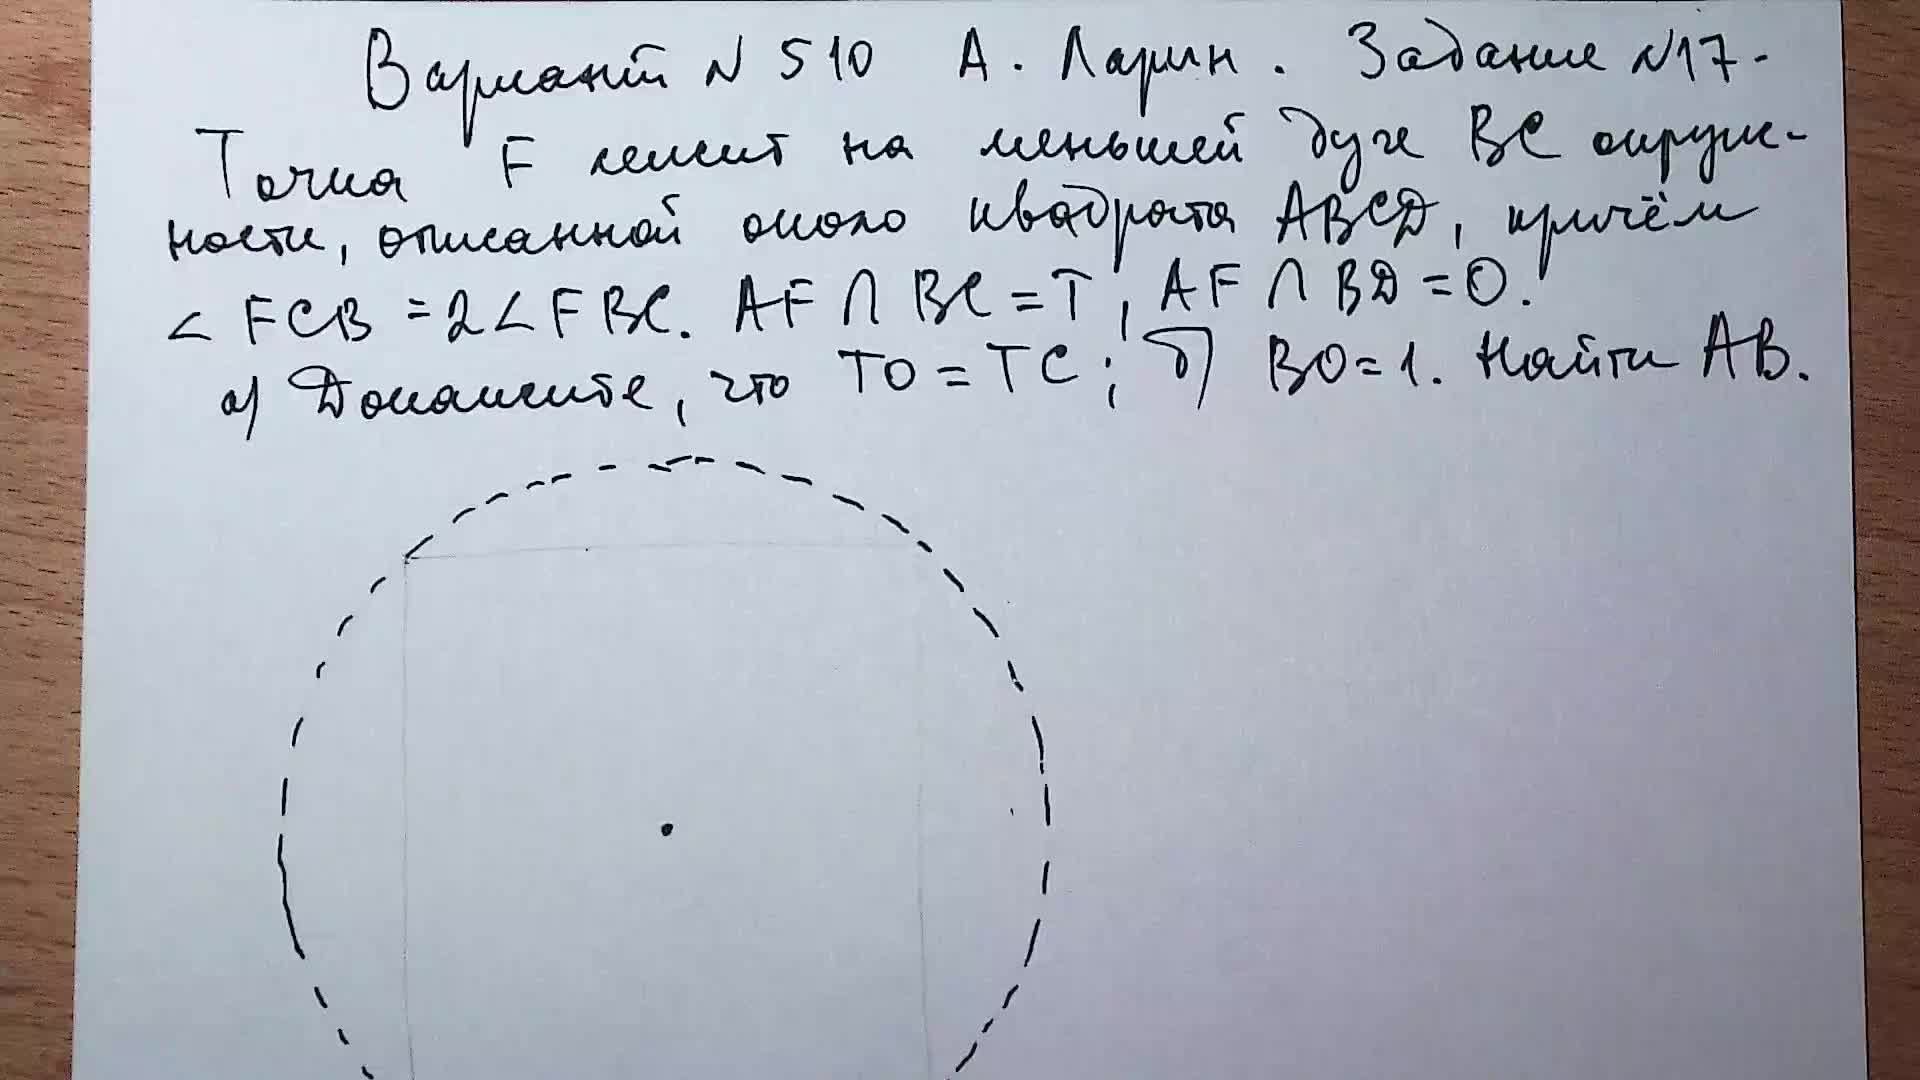 Вариант N 510 А. Ларин. Задание N17.
Точка F лежит на меньшей дуге BC окруж-
ности, описанной около квадрата ABCD, причём
∠ FCB = 2∠FBC. AF ∩ BC = T, AF ∩ BD = O.
а) Докажите, что TO = TC; б) BO = 1. Найти AB.